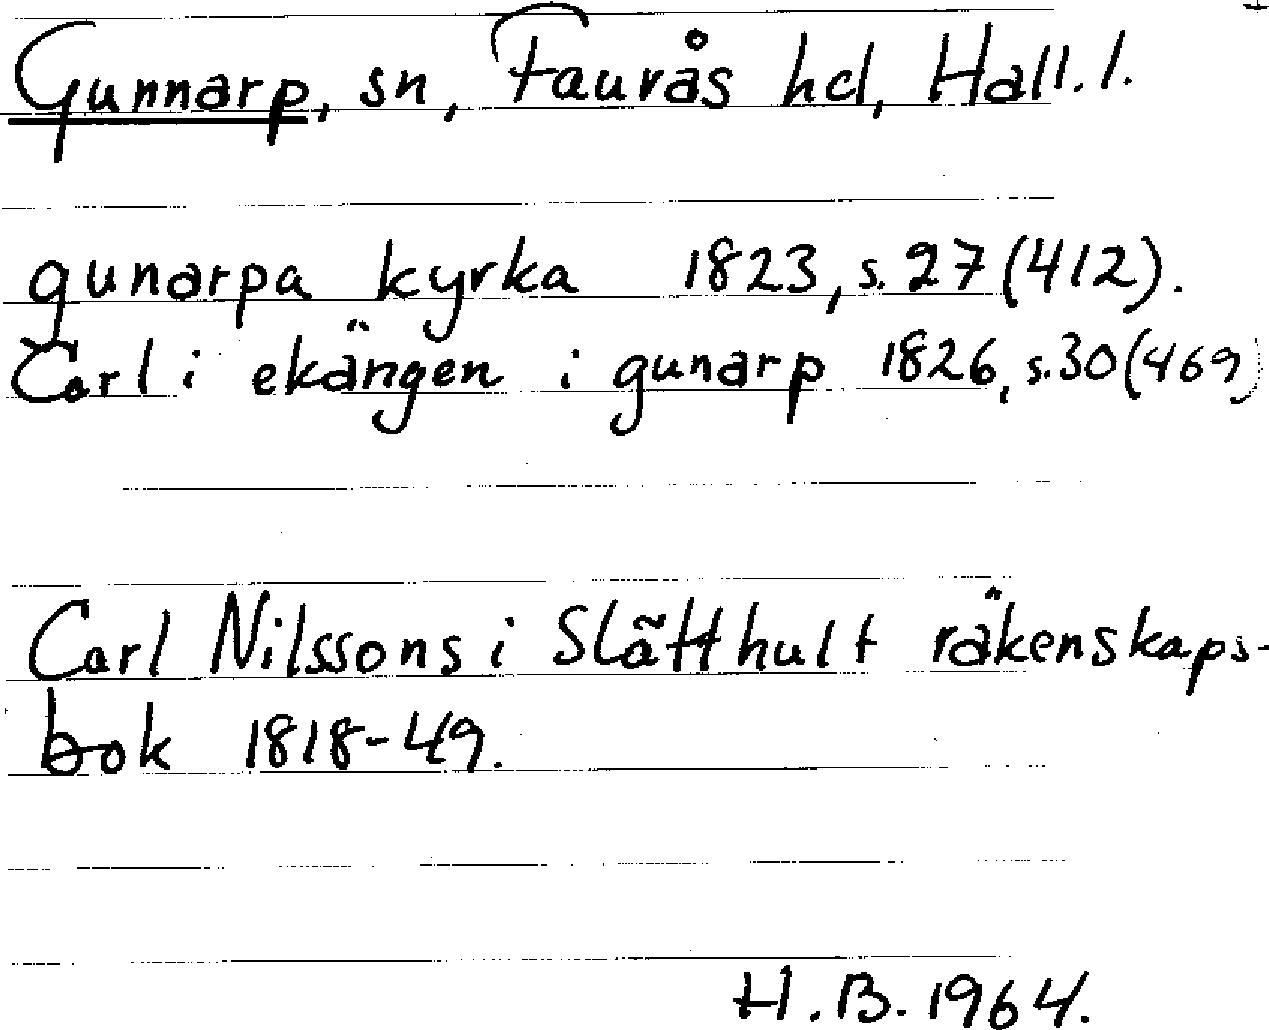 Gunnarp, sn, Faurås hd, Hall. l.
gunarpa kyrka 1823, s. 27 (412).
Carl i ekängen i gunarp 1826, s. 30 (469)
Carl Nilssons i Slätthult räkenskaps-
bok 1818-49.
H.B. 1964.